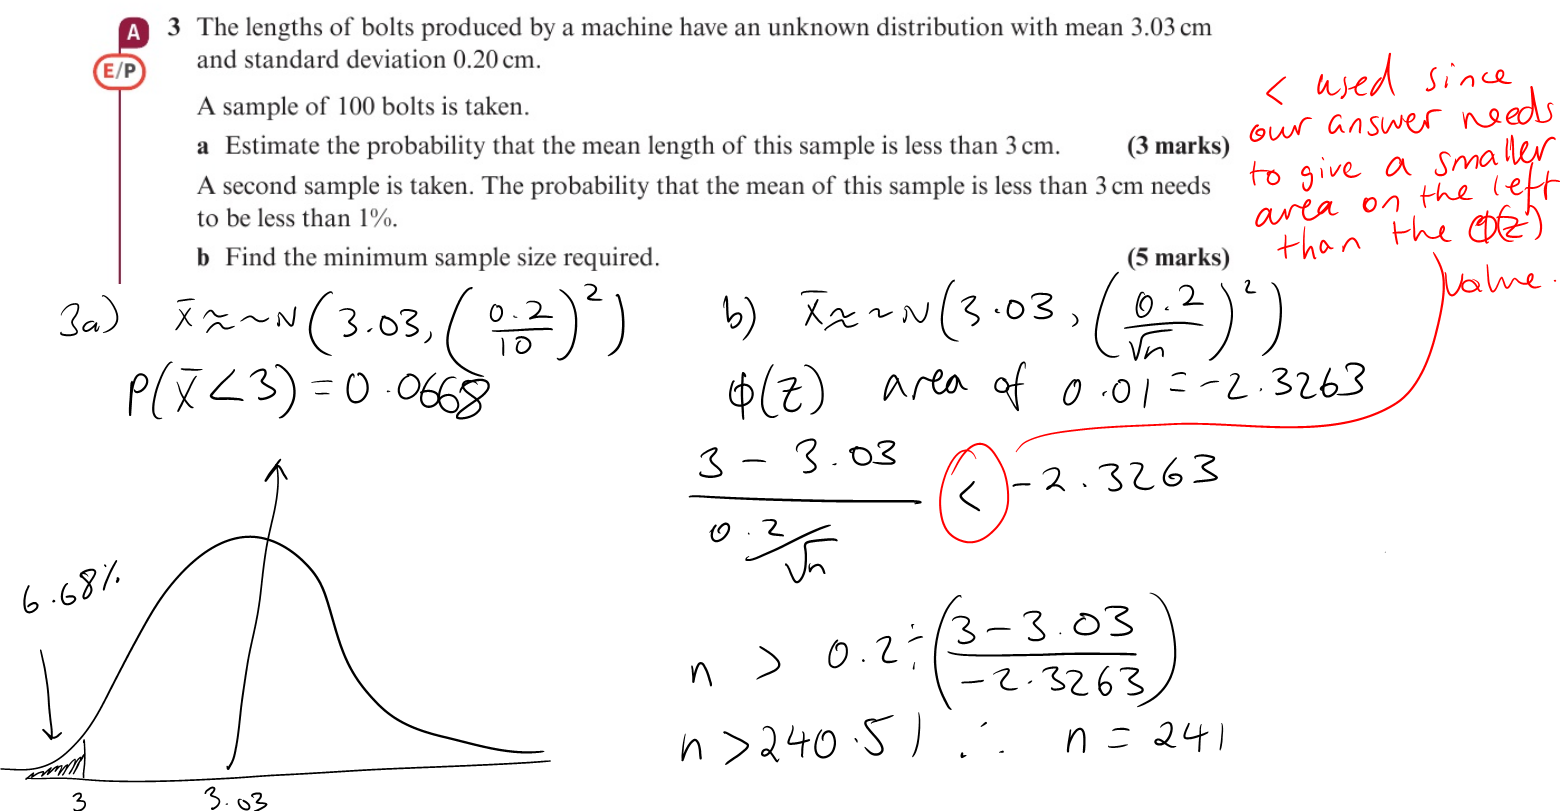 A
E/P
3 The lengths of bolts produced by a machine have an unknown distribution with mean 3.03 cm
and standard deviation 0.20 cm.
A sample of 100 bolts is taken.
a Estimate the probability that the mean length of this sample is less than 3 cm. (3 marks)
A second sample is taken. The probability that the mean of this sample is less than 3 cm needs
to be less than 1%.
b Find the minimum sample size required. (5 marks)
< used since
our answer needs
to give a smaller
area on the left
than the Φ(z)
value.
3a) X̄ ≈~N(3.03, (0.2/10)²)
P(X̄<3) = 0.0668
6.68%
3
3.03
b) X̄ ≈~N(3.03, (0.2/√n)²)
Φ(z) area of 0.01 = -2.3263
3 - 3.03
0.2/√n
< -2.3263
n > 0.2 ÷ (3-3.03/-2.3263)
n > 240.51 ∴ n = 241